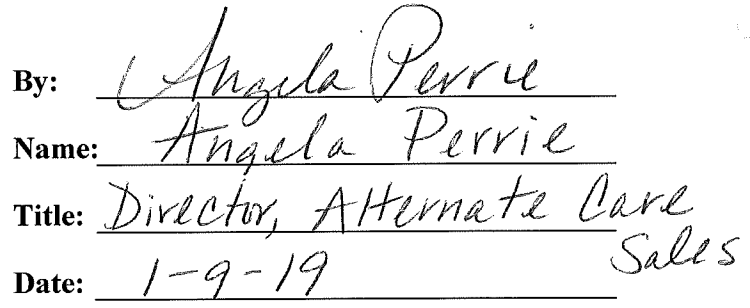 By: Angela Perrie
Name: Angela Perrie
Title: Director, Alternate Care
Sales
Date: 1-9-19